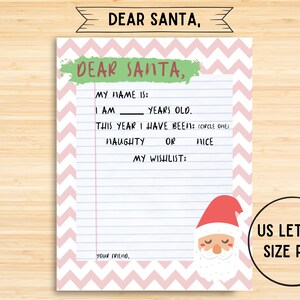 DEAR SANTA,
DEAR SANTA,
MY NAME IS:
I AM _____ YEARS OLD.
THIS YEAR I HAVE BEEN: (CIRCLE ONE)
NAUGHTY OR NICE
MY WISHLIST:
US LET
SIZE P
YOUR FRIEND,